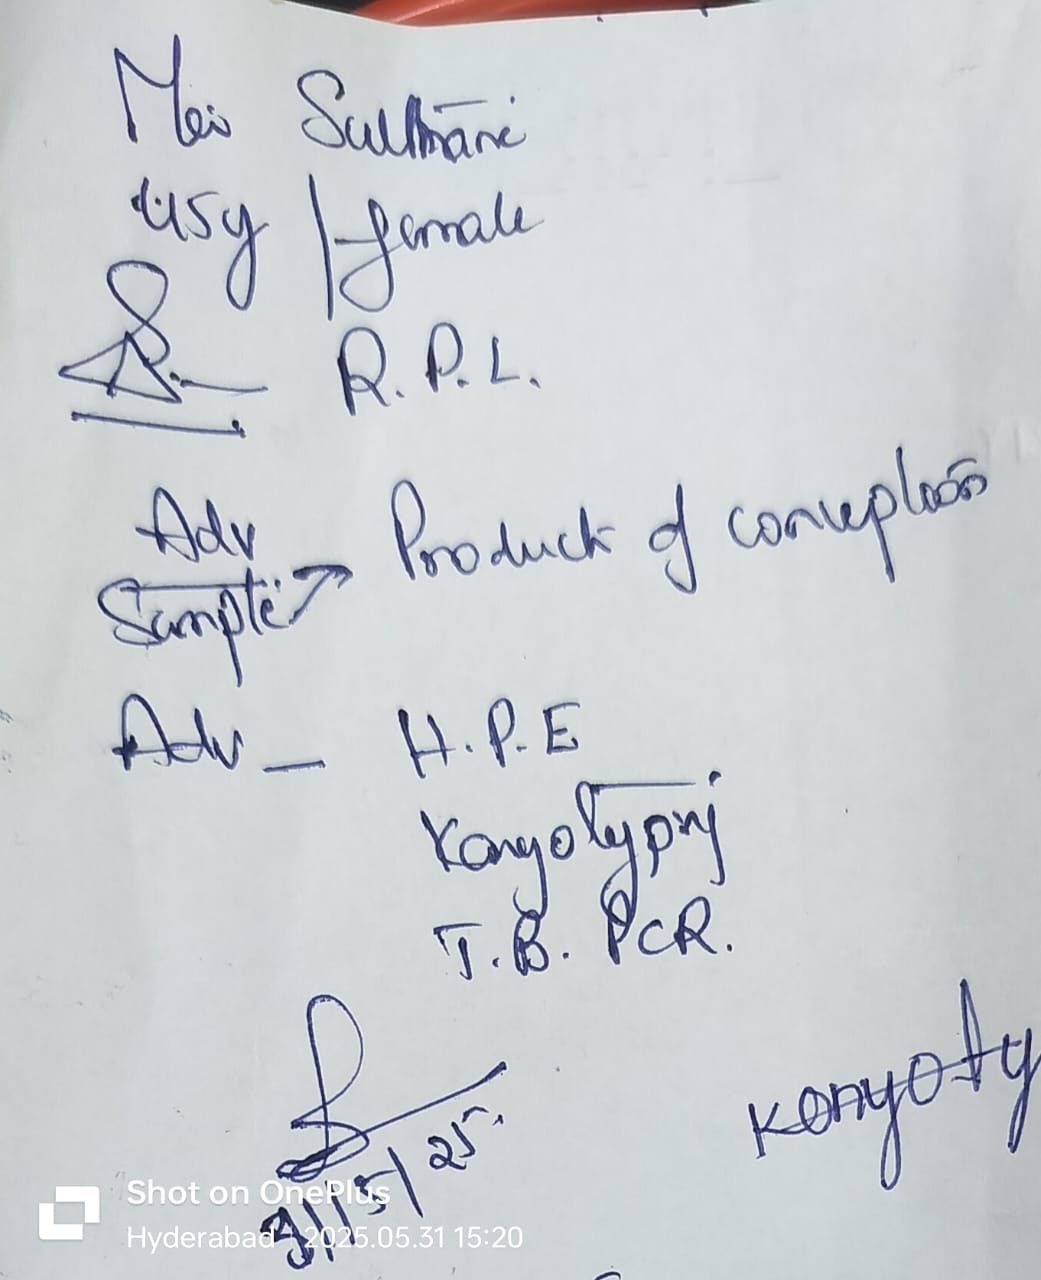 Mrs Sulthana
45y / female
R.P.L.
Adv
Sample → Product of conception
Adv - H.P.E
Karyotyping
T.B. PCR.
31/5/25.
Karyoty
Shot on OnePlus
Hyderabad | 2025.05.31 15:20